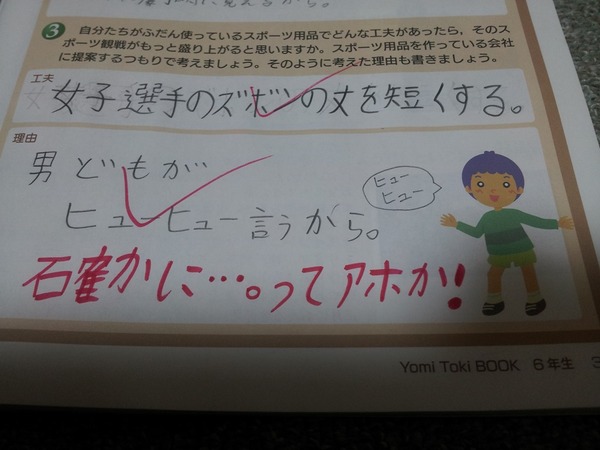 3 自分たちがふだん使っているスポーツ用品でどんな工夫があったら，そのス
ポーツ観戦がもっと盛り上がると思いますか。スポーツ用品を作っている会社
に提案するつもりで考えましょう。そのように考えた理由も書きましょう。
工夫
女子選手のズボンの丈を短くする。
理由
男どもが
ヒューヒュー言うから。
ヒュー
ヒュー
石寉かに…。ってアホか!
Yomi Toki BOOK 6年生 3